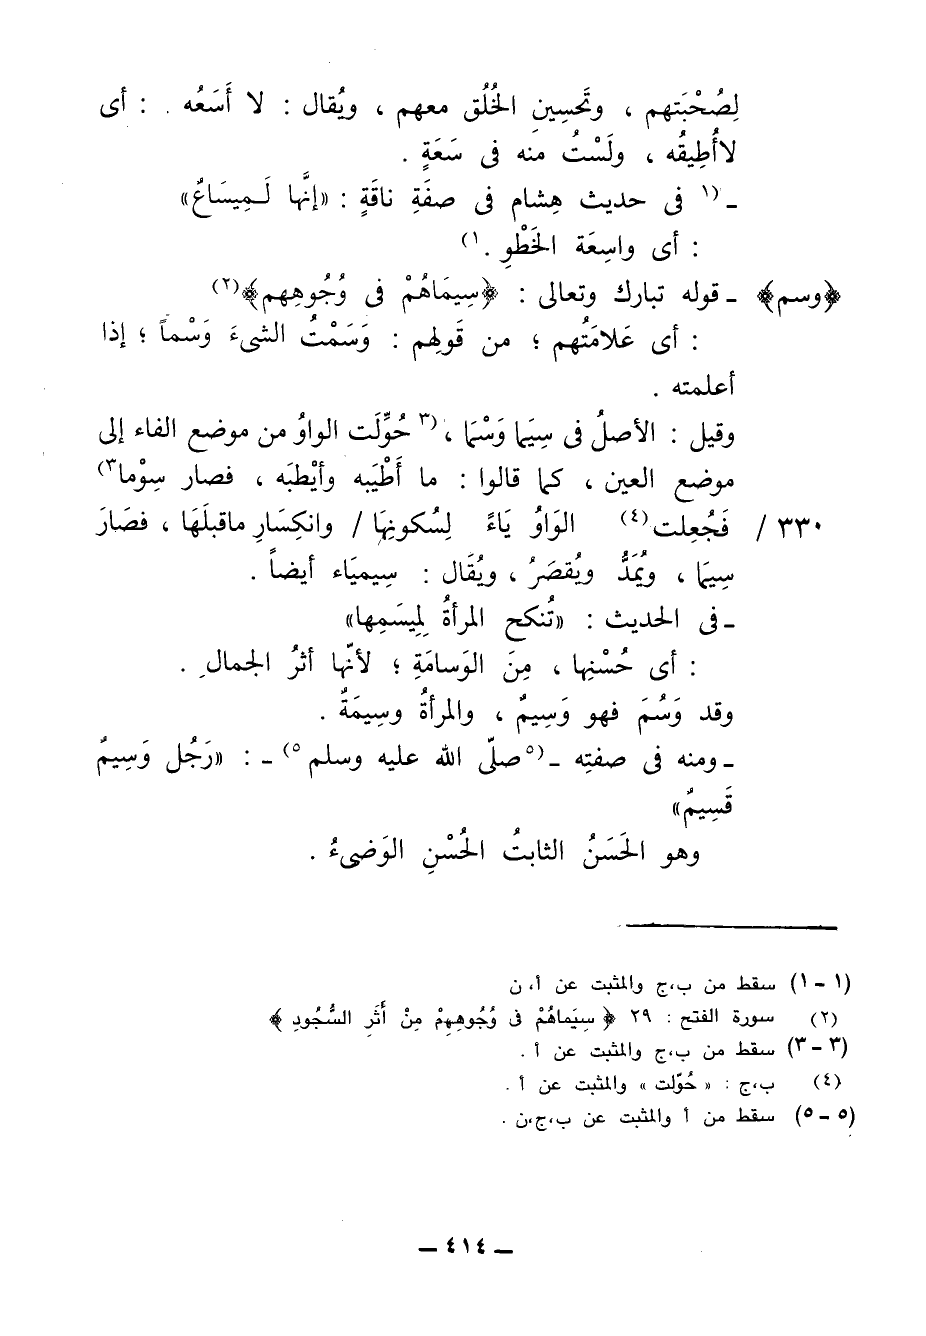 لِصُحْبَتهم ، وتَحسِينِ الخُلُق معهم ، ويُقال : لا أَسَعُه . : أى
لاأُطِيقُه ، ولَسْتُ منه فى سَعَةٍ .
ـ (١ فى حديث هِشام فى صفَةِ ناقَةٍ : «إنَّها لَـمِيسَاعٌ»
: أى واسِعَة الخَطْوِ .١)
﴿وسم﴾ ـ قوله تبارك وتعالى : ﴿سِيمَاهُمْ فى وُجُوهِهم﴾(٢)
: أى عَلامَتُهم ؛ من قَولِهم : وَسَمْتُ الشىءَ وَسْماً ؛ إذا
أعلمته .
وقيل : الأصلُ فى سِيَما وَسْمَا ،(٣ حُوِّلَت الواوُ من موضع الفاء إلى
موضع العين ، كما قالوا : ما أَطْيَبه وأيْطبَه ، فصار سِوْما٣)
٣٣٠ / فَجُعِلت(٤) الوَاوُ يَاءً لِسُكونِهَا / وانكِسَارِ ماقبلَهَا ، فصَارَ
سِيمَا ، ويُمَدُّ ويُقصَرُ ، ويُقَال : سِيمِيَاء أيضاً .
ـ فى الحديث : «تُنكح المرأةُ لِمِيسَمِها»
: أى حُسْنِها ، مِنَ الوَسامَةِ ؛ لأنّها أثرُ الجمالِ .
وقد وَسُمَ فهو وَسِيمٌ ، والمرأةُ وسِيمَةٌ .
ـ ومنه فى صفتِه ـ (٥ صلّى الله عليه وسلم ٥) ـ : «رَجُل وَسِيمٌ
قَسِيمٌ»
وهو الحَسَنُ الثابتُ الحُسْنِ الوَضىءُ .
(١ - ١) سقط من ب،ج والمثبت عن أ، ن
(٢) سورة الفتح : ٢٩ ﴿ سِيَماهُمْ فى وُجُوهِهِمْ مِنْ أَثَرِ السُّجُودِ ﴾
(٣ - ٣) سقط من ب،ج والمثبت عن أ .
(٤) ب،ج : « حُوّلت » والمثبت عن أ .
(٥ - ٥) سقط من أ والمثبت عن ب،ج،ن .
ـ ٤١٤ ـ